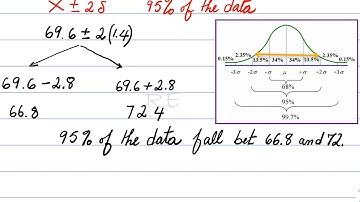 x ± 2s 95% of the data
69.6 ± 2(1.4)
69.6 - 2.8 69.6 + 2.8
66.8 72.4
95% of the data fall bet 66.8 and 72.
0.15% 2.35% 13.5% 34% 34% 13.5% 2.35% 0.15%
-3σ -2σ -σ μ +σ +2σ +3σ
68%
95%
99.7%